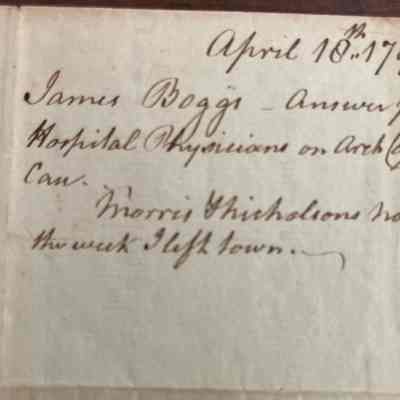 April 18th. 179
James Boggs - Answer f
Hospital Physicians on Arch (
Can.
Morris & Nicholsons no
the week I left town.